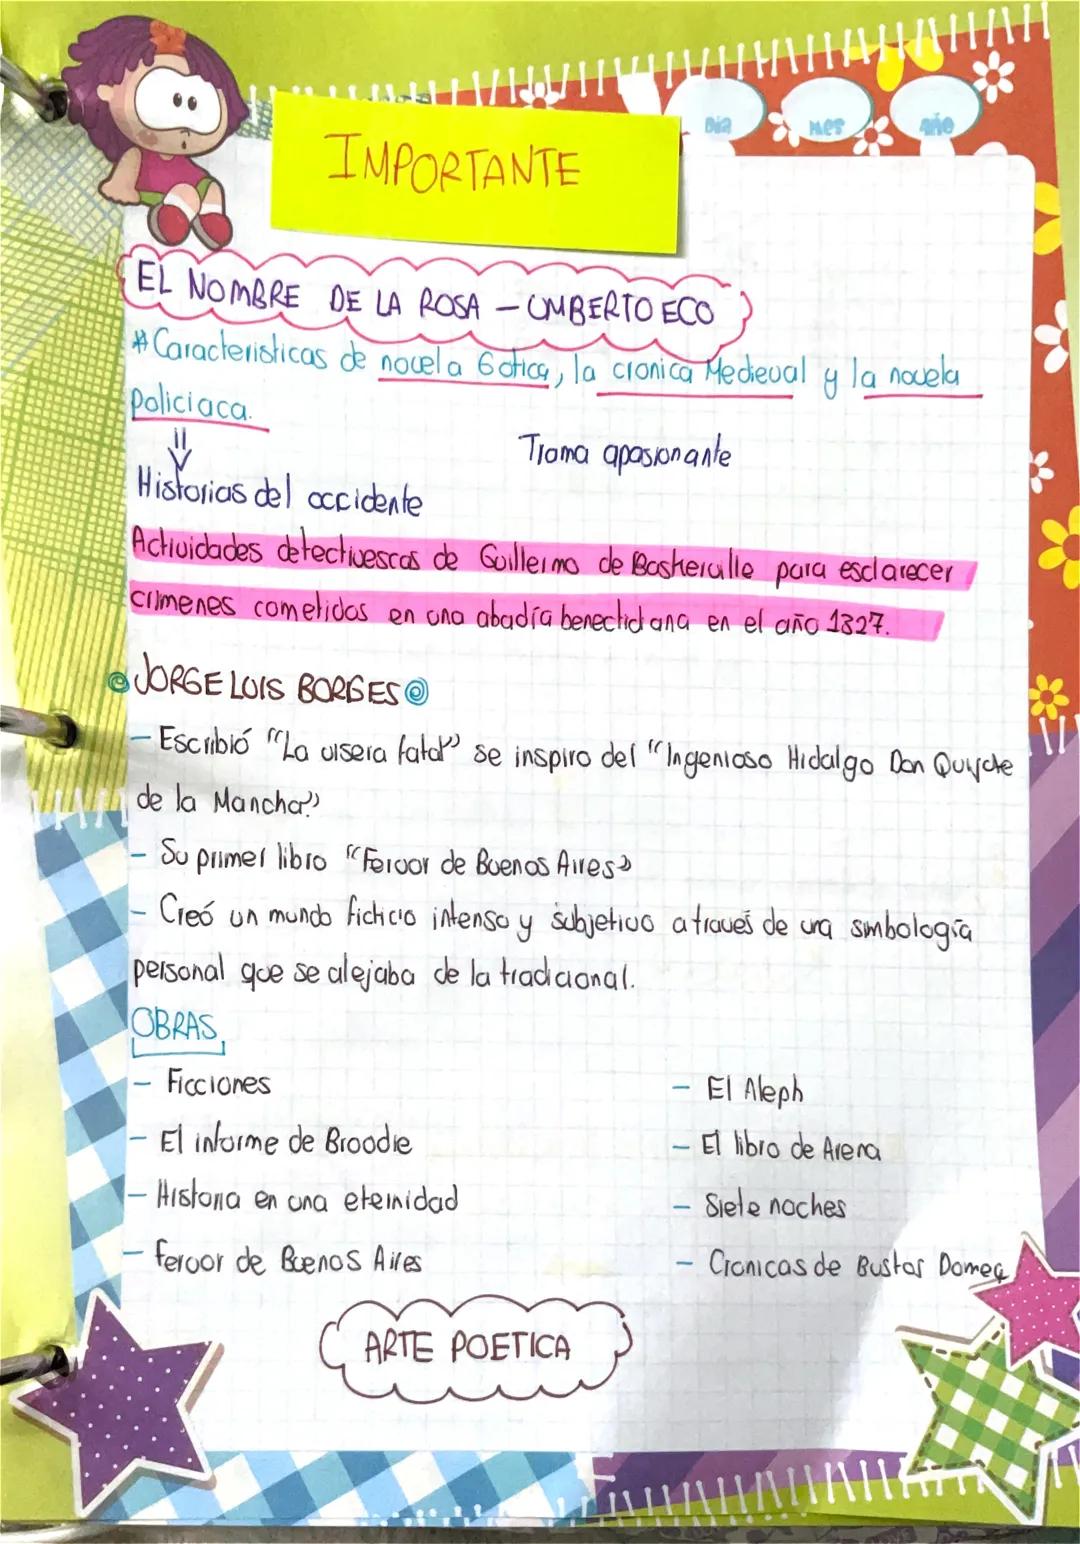 Dia Mes año
IMPORTANTE
EL NOMBRE DE LA ROSA - UMBERTO ECO
*Caracteristicas de novela Gotica, la cronica Medieval y la novela
Policiaca.
Trama apasionante
Historias del occidente
Actividades detectivescas de Guillermo de Baskerville para esclarecer
crimenes cometidos en una abadía benectidiana en el año 1327.
JORGE LUIS BORGES
- Escribió "La visera fatal" se inspiro del "Ingenioso Hidalgo Don Quijote
de la Mancha"
- Su primer libro "Fervor de Buenos Aires"
- Creó un mundo ficticio intenso y subjetivo a través de una simbología
personal que se alejaba de la tradicional.
OBRAS
- Ficciones
- El Aleph
- El informe de Broodie
- El libro de Arena
- Historia en una eternidad
- Siete noches
- fervor de Buenos Aires
- Cronicas de Bustos Domeq
ARTE POETICA